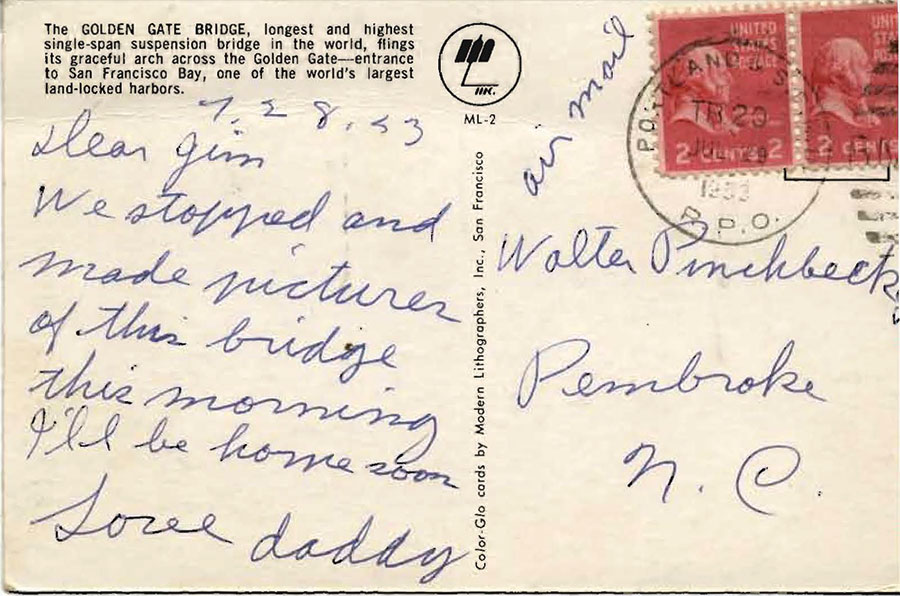 The GOLDEN GATE BRIDGE, longest and highest
single-span suspension bridge in the world, flings
its graceful arch across the Golden Gate—entrance
to San Francisco Bay, one of the world's largest
land-locked harbors.
INC.
ML-2
7.28.53
Dear Jim
We stopped and
made pictures
of this bridge
this morning
I'll be home soon
Love daddy
Color-Glo cards by Modern Lithographers, Inc., San Francisco
air mail
UNITED
STATES
2 CENTS 2
2 CENTS
TR 29
JUL 29
1953
R.P.O.
Walter Pinchbeck
Pembroke
N. C.